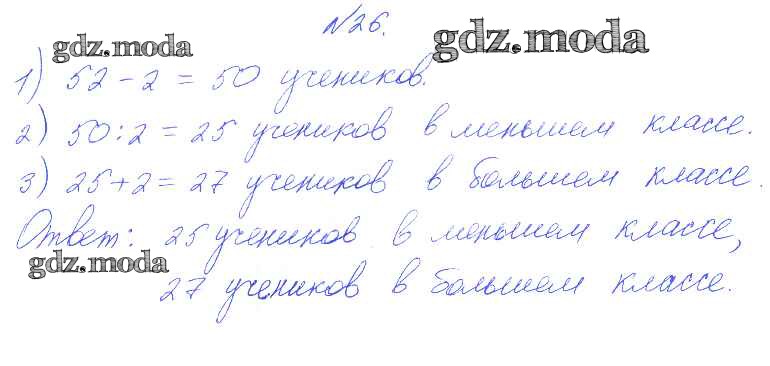 №26.
gdz.moda gdz.moda
1) 52 - 2 = 50 учеников.
2) 50 : 2 = 25 учеников в меньшем классе.
3) 25 + 2 = 27 учеников в большем классе.
Ответ: 25 учеников в меньшем классе,
gdz.moda
27 учеников в большем классе.